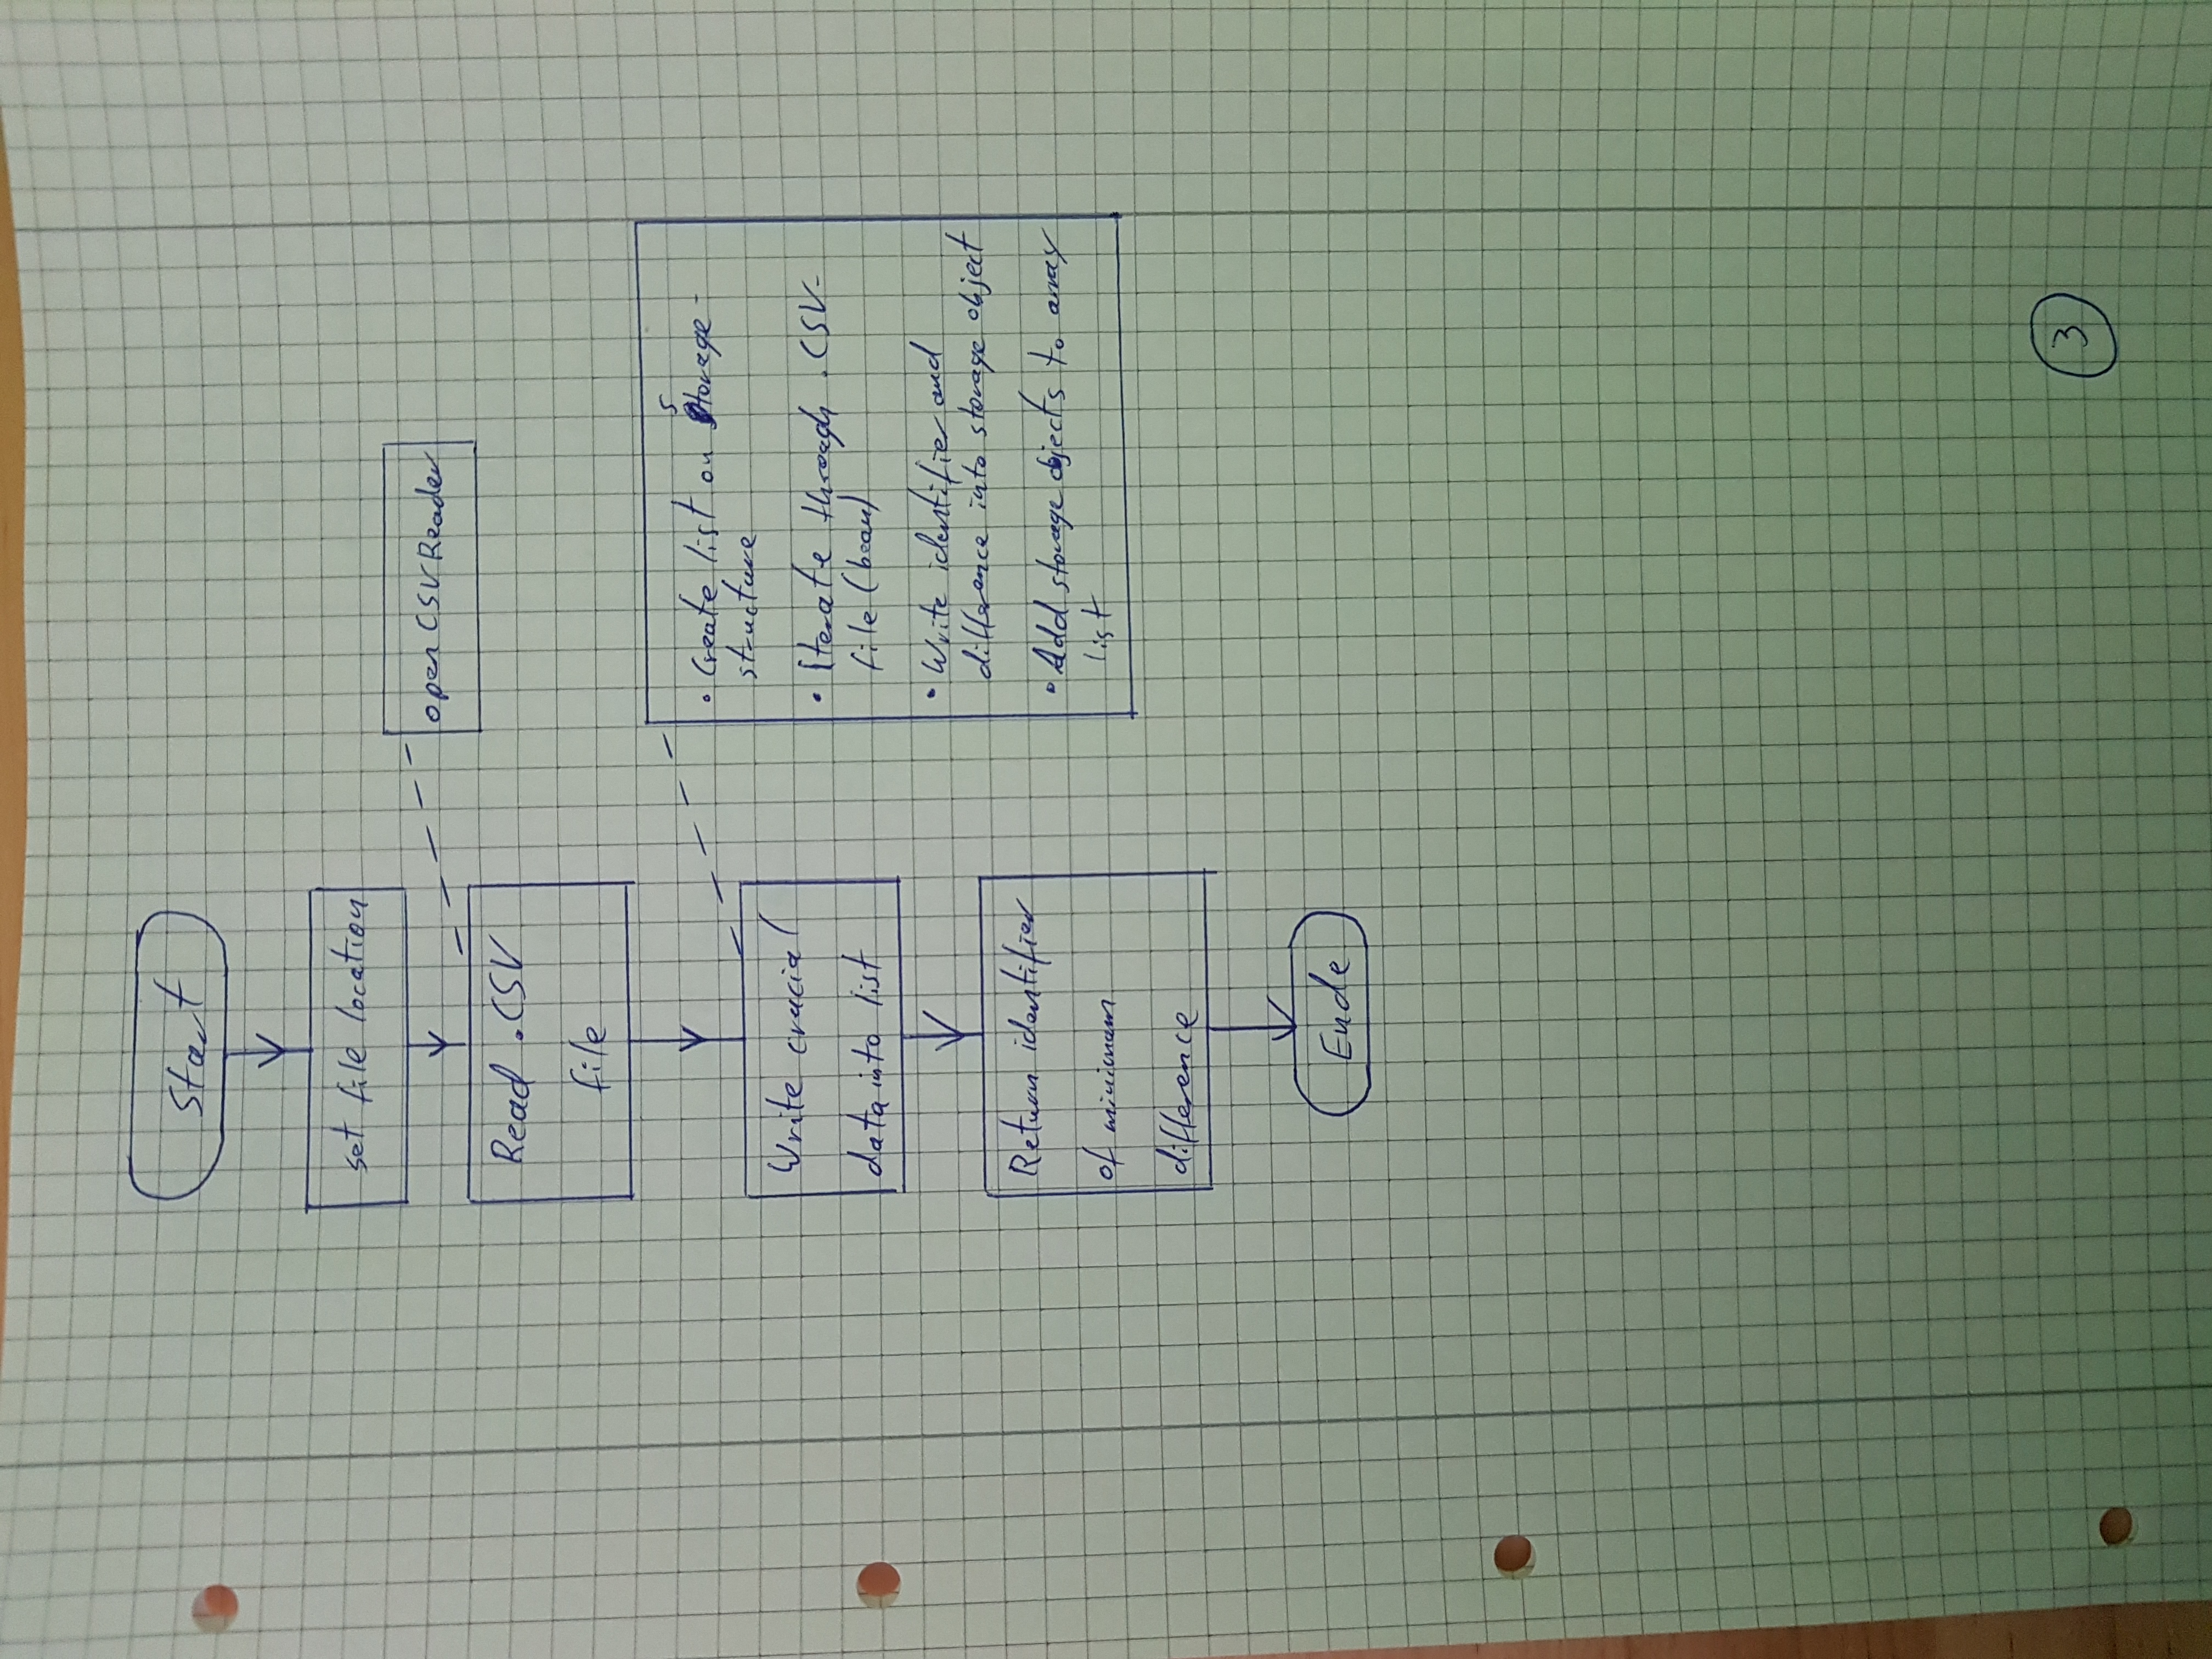 Start
set file location
open CSV Reader
Read .CSV
file
Write crucial
data into list
• Create list on Storage-
structure
• Iterate through .CSV-
file (bean)
• Write identifier and
difference into storage object
• Add storage objects to array
list
Return identifier
of minimum
difference
Ende
3